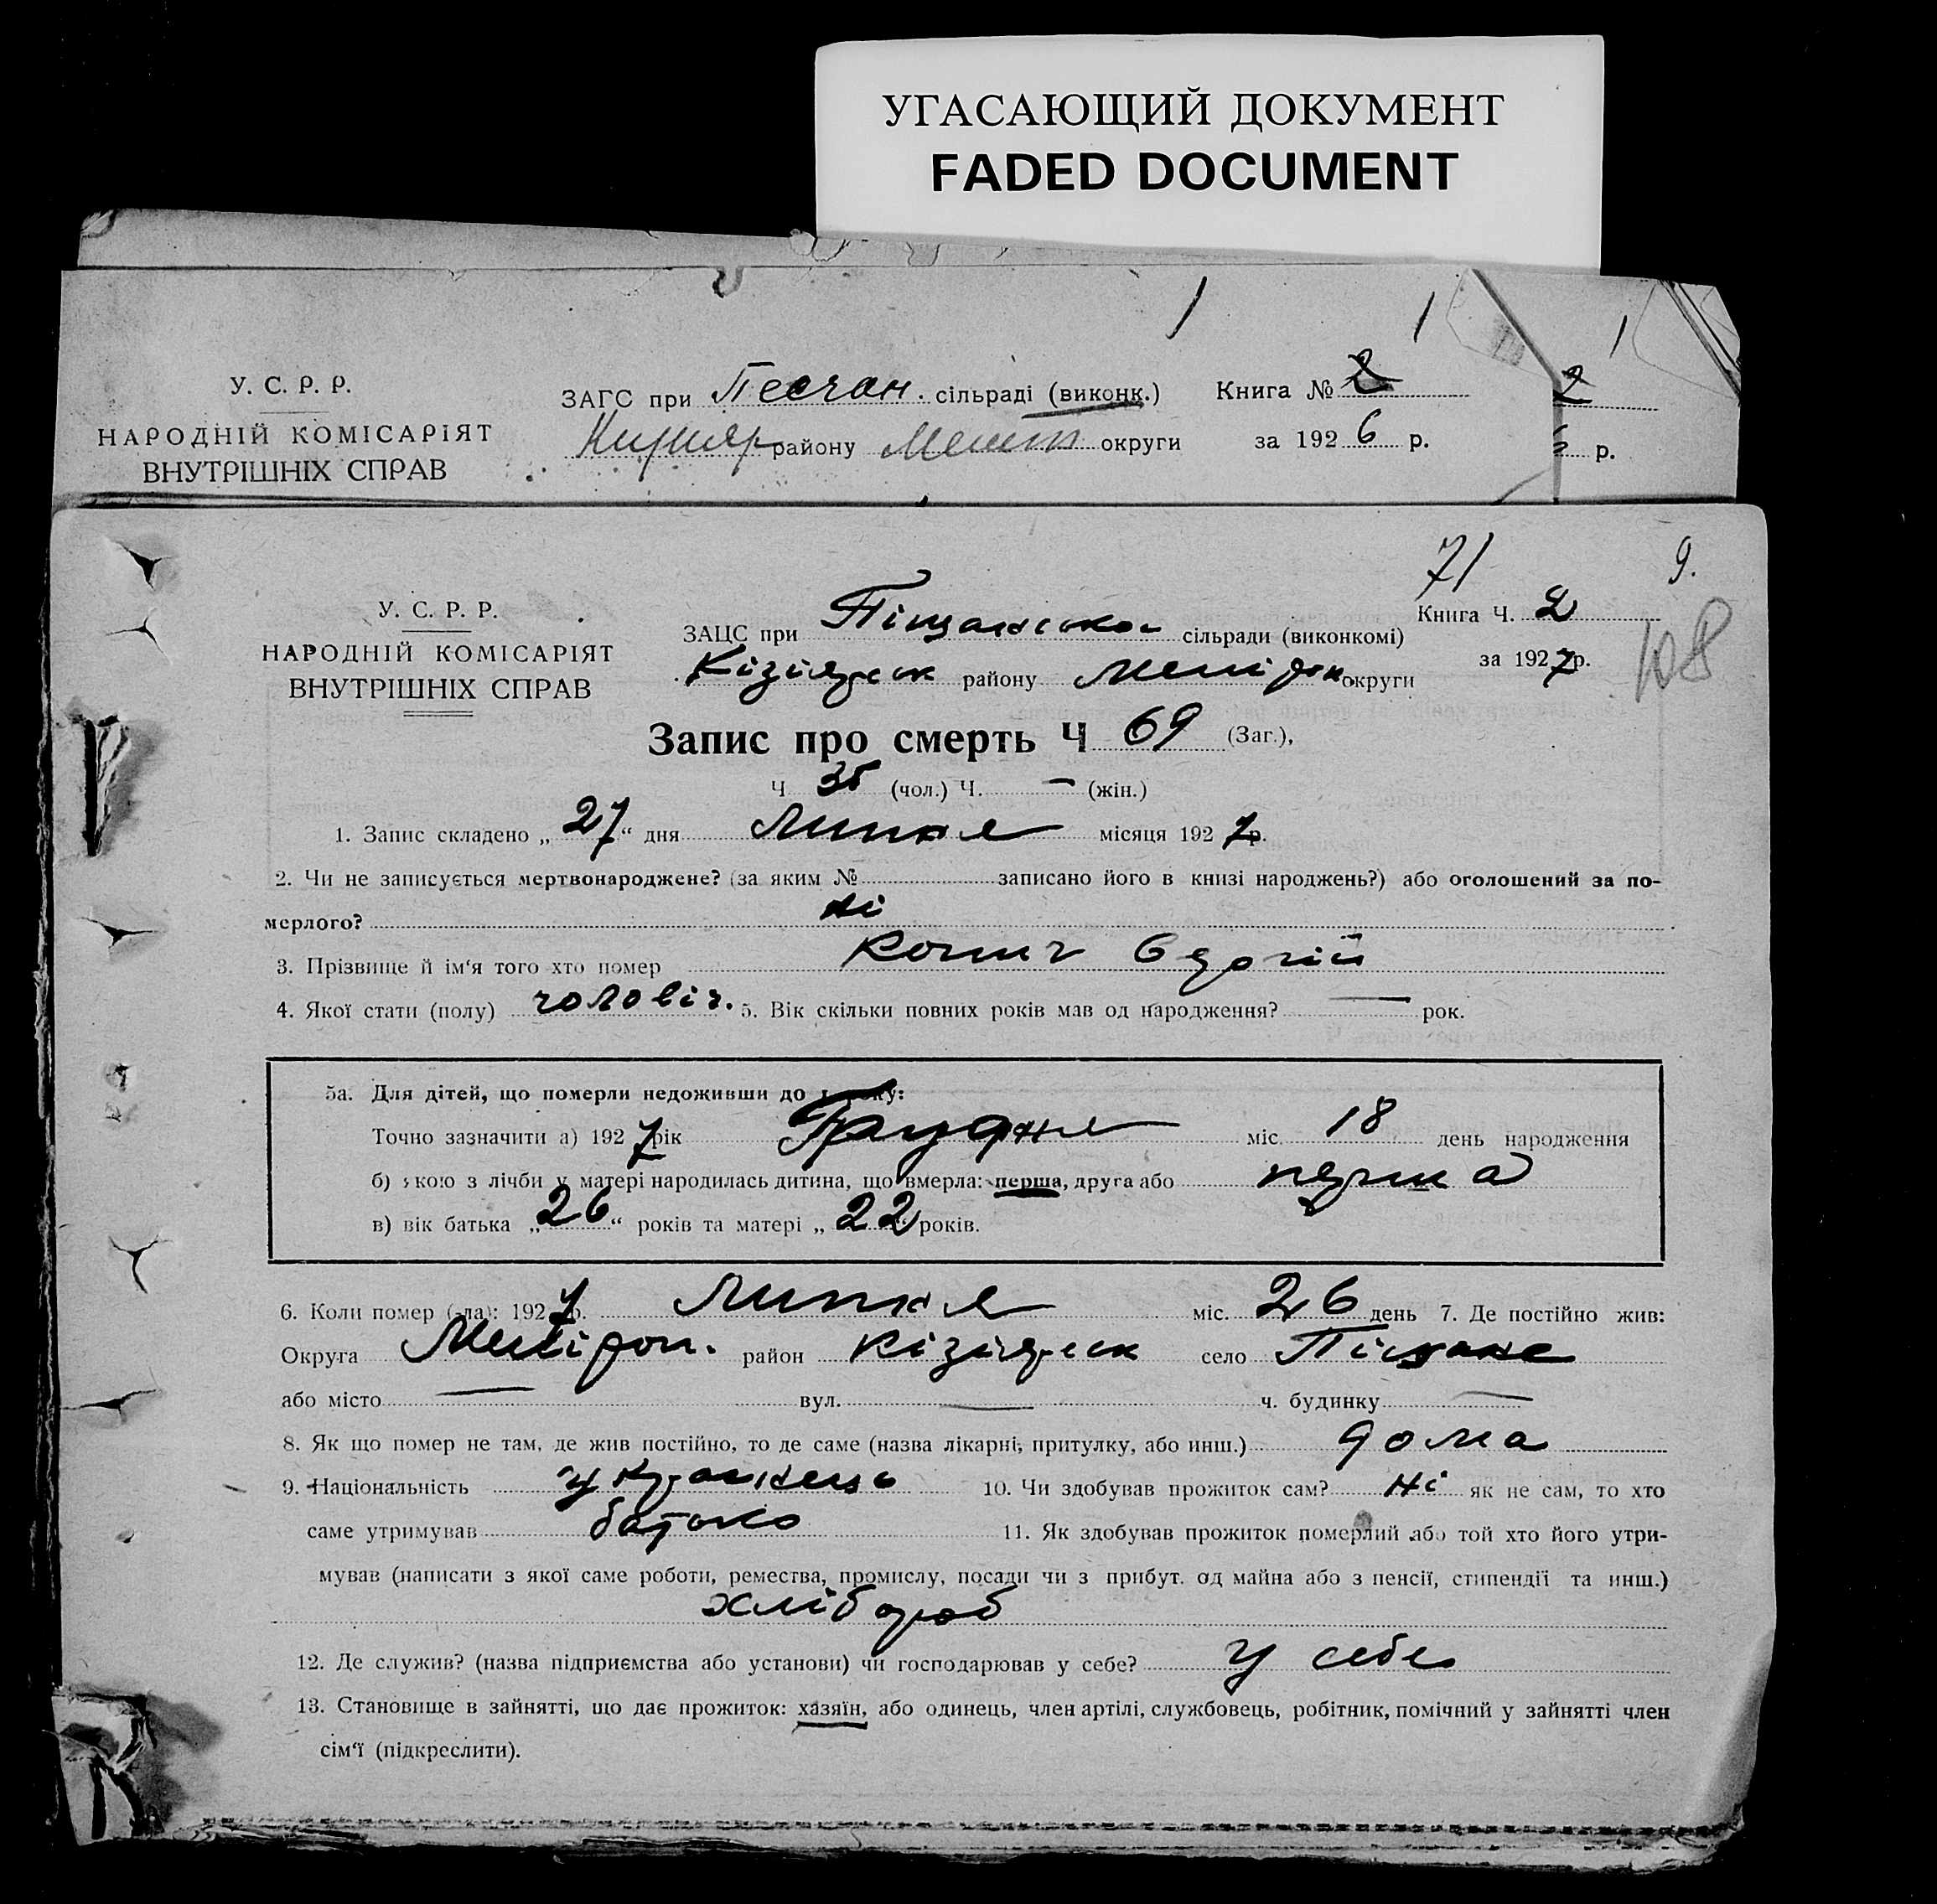 УГАСАЮЩИЙ ДОКУМЕНТ
FADED DOCUMENT
У. С. Р. Р.
НАРОДНІЙ КОМІСАРІЯТ
ВНУТРІШНІХ СПРАВ
ЗАГС при Песчан. сільраді (виконк.) Книга № 2
району Меліт округи за 1926 р.
2
р.
71
9.
108
У. С. Р. Р.
НАРОДНІЙ КОМІСАРІЯТ
ВНУТРІШНІХ СПРАВ
ЗАЦС при Піщанської сільради (виконкомі) Книга Ч. 2
Кізіярськ району Мелітоп округи за 1927 р.
Запис про смерть Ч 69 (Заг.),
Ч 35 (чол.) Ч. — (жін.)
1. Запис складено „27“ дня Липня місяця 1927 р.
2. Чи не записується мертвонароджене? (за яким № записано його в книзі народжень?) або оголошений за по-
мерлого? Ні
3. Прізвище й ім'я того хто помер
4. Якої стати (полу) чоловіч. 5. Вік скільки повних років мав од народження? — рок.
5а. Для дітей, що померли недоживши до 1 року:
Точно зазначити а) 1927 рік Грудня міс. 18 день народження
б) якою з лічби у матері народилась дитина, що вмерла: перша, друга або перша
в) вік батька „26“ років та матері „22“ років.
6. Коли помер (-ла): 1927 р. Липня міс. 26 день 7. Де постійно жив:
Округа Мелітоп. район Кізіярськ село Піщане
або місто — вул. — ч. будинку —
8. Як що помер не там, де жив постійно, то де саме (назва лікарні, притулку, або инш.) дома
9. Національність українець 10. Чи здобував прожиток сам? Ні як не сам, то хто
саме утримував батько 11. Як здобував прожиток померлий або той хто його утри-
мував (написати з якої саме роботи, ремества, промислу, посади чи з прибут. од майна або з пенсії, стипендії та инш.)
хлібороб
12. Де служив? (назва підприємства або установи) чи господарював у себе? у себе
13. Становище в зайнятті, що дає прожиток: хазяїн, або одинець, член артілі, службовець, робітник, помічний у зайнятті член
сім'ї (підкреслити).